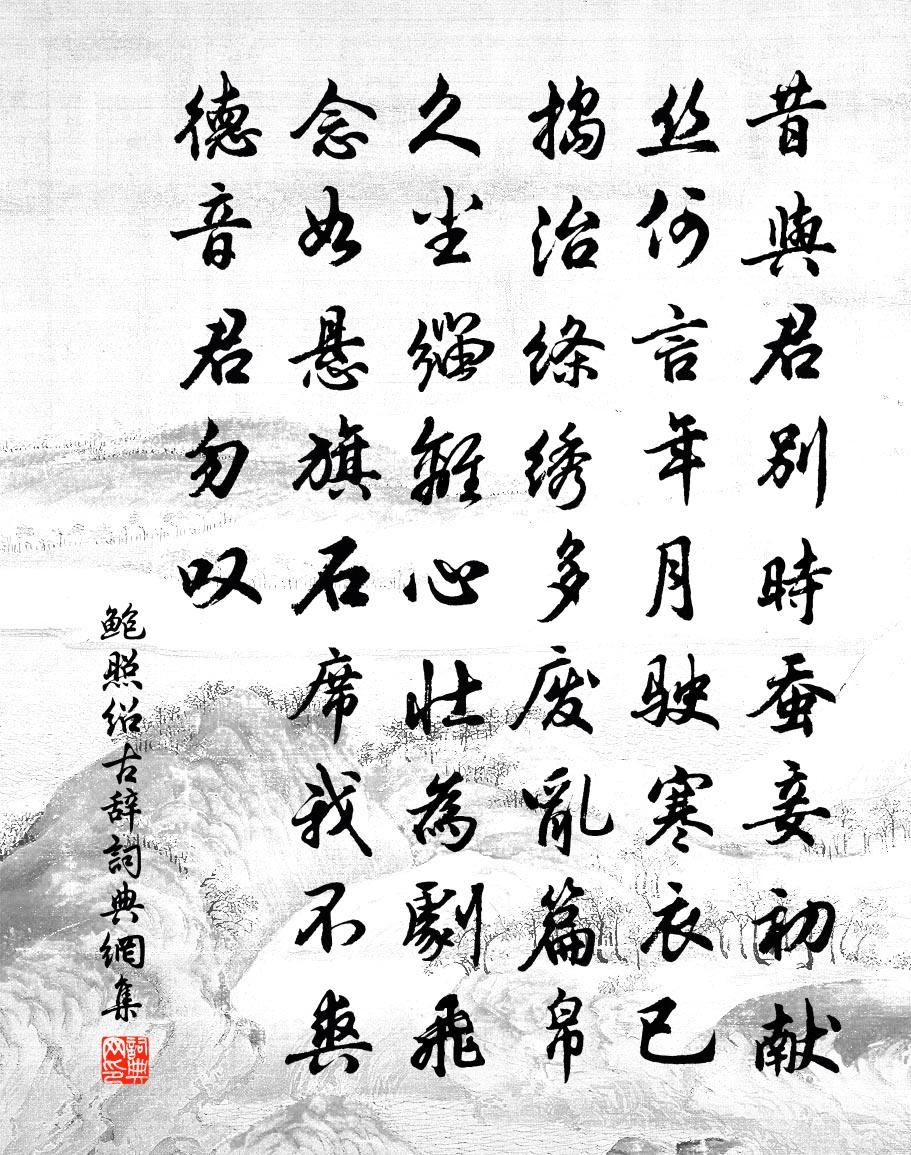 昔與君別時蚕妾初献
丝何言年月駛寒衣已
搗治绦绣多废亂篇帛
久尘緇離心壮為劇飛
念如悬旗石席我不爽
德音君勿叹
鲍照绍古辞詞典網集
詞典网印